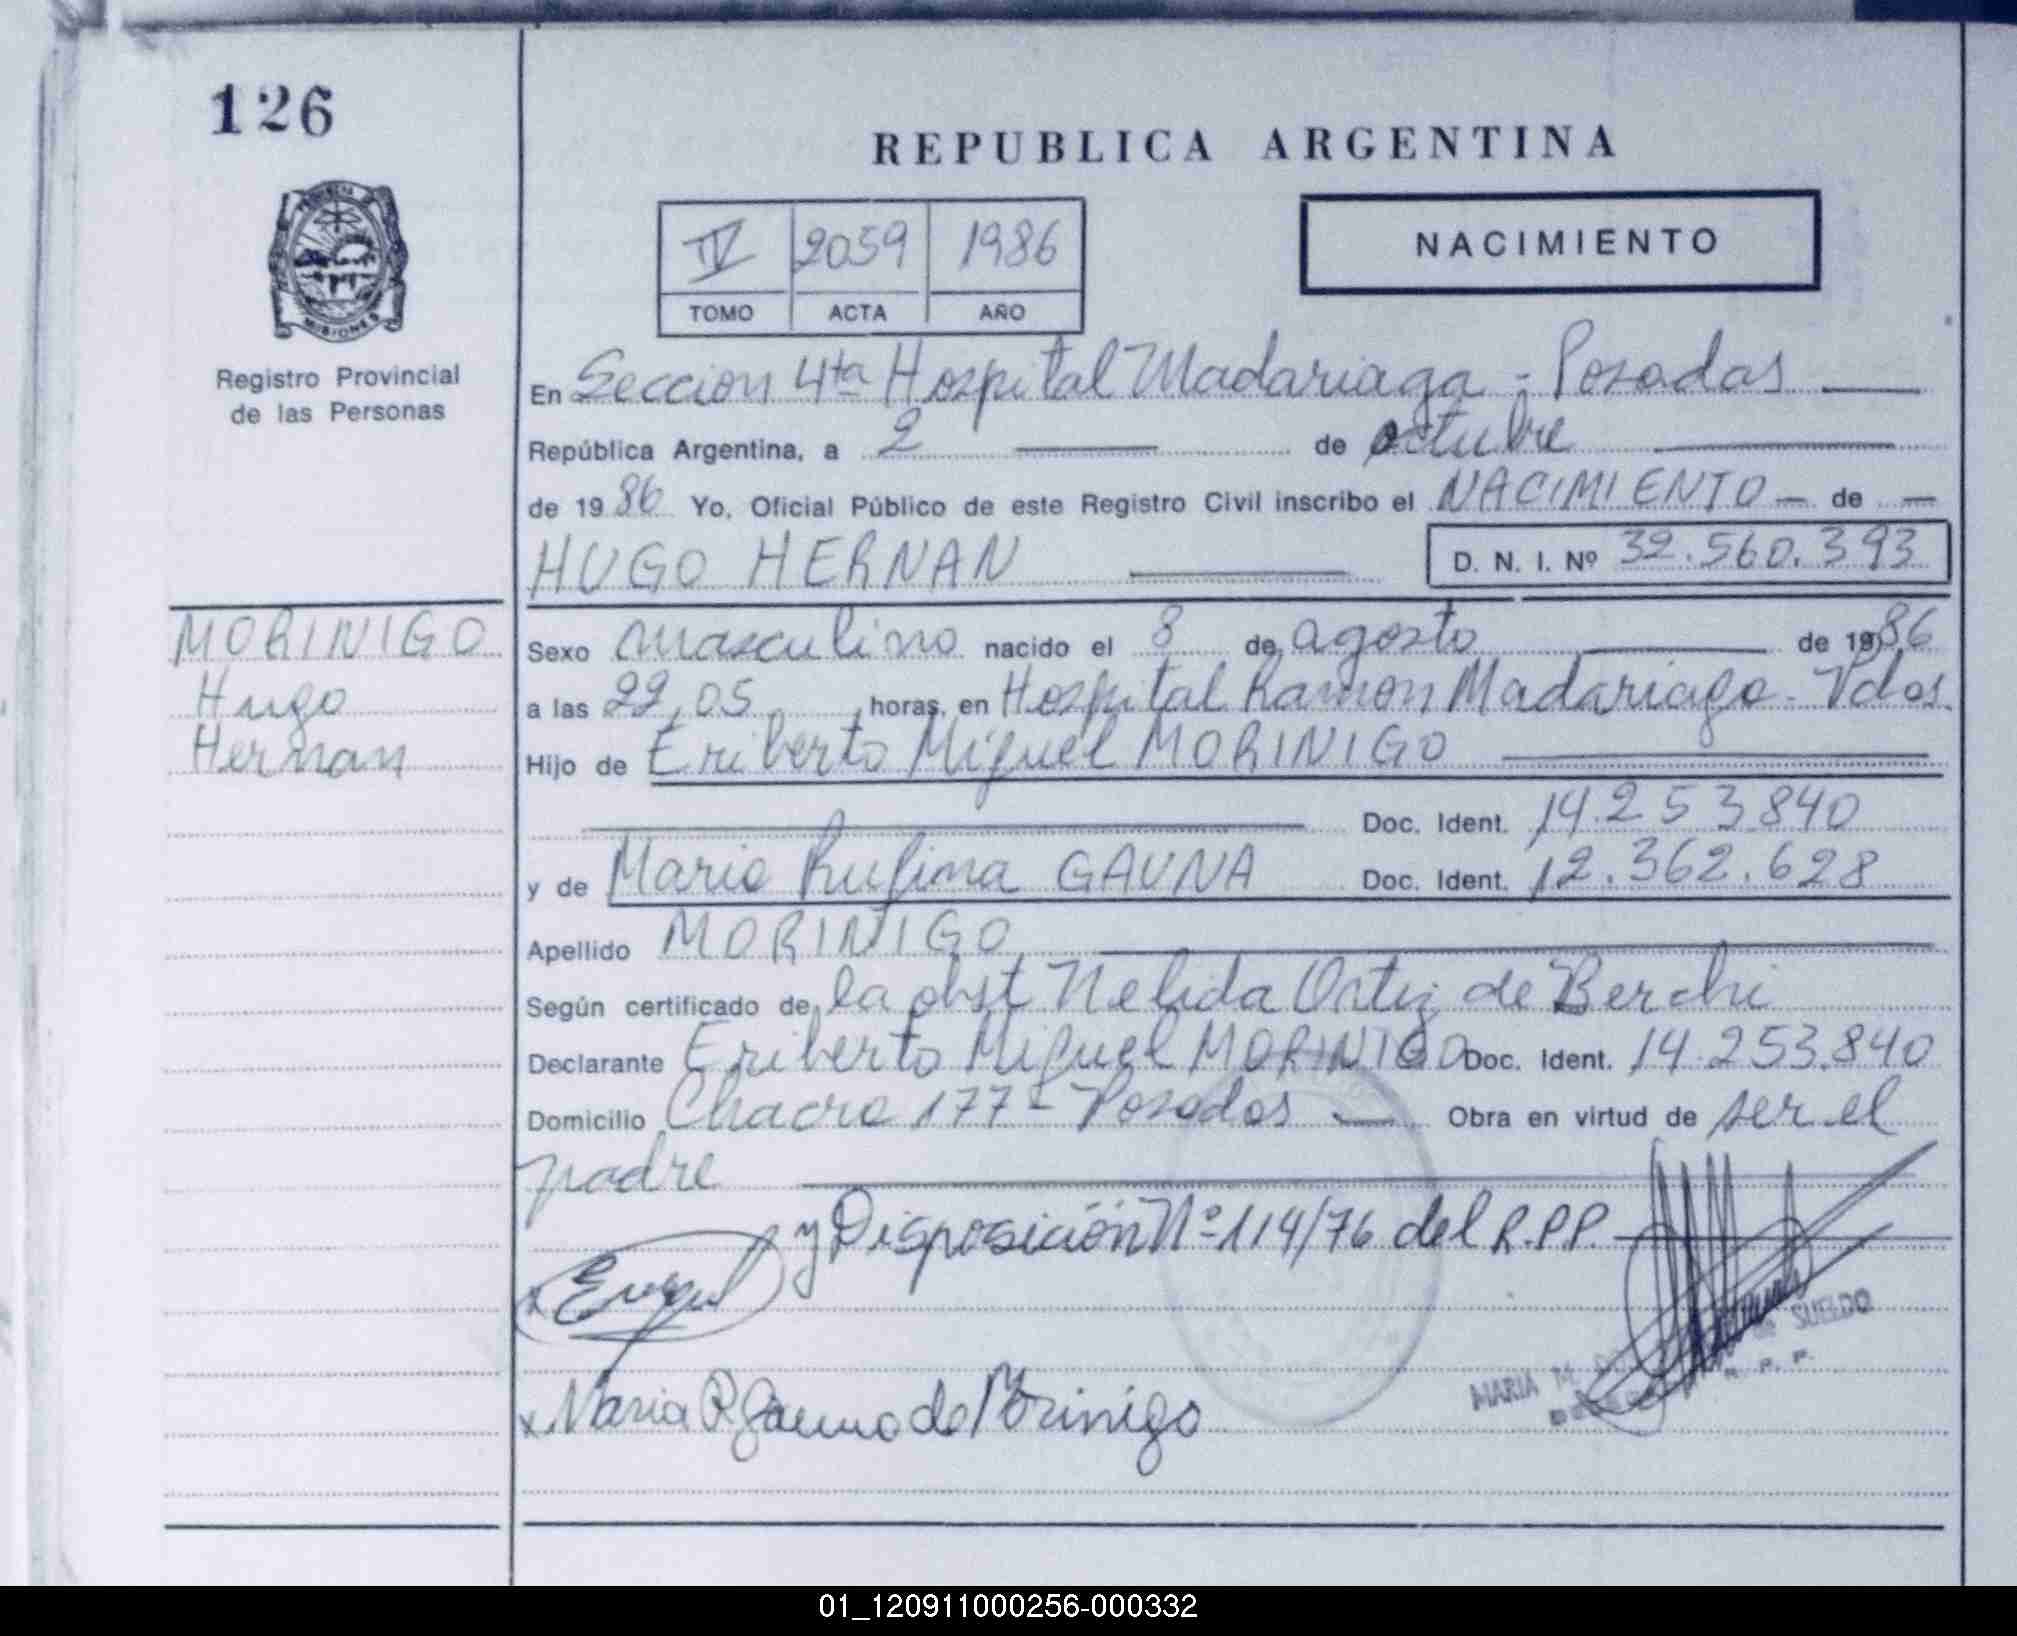 126
REPUBLICA ARGENTINA
IV 2059 1986
TOMO ACTA AÑO
NACIMIENTO
MISIONES
Registro Provincial
de las Personas
En Seccion 4ta Hospital Madariaga - Posadas
República Argentina, a 2 de octubre
de 1986 Yo, Oficial Público de este Registro Civil inscribo el NACIMIENTO de
HUGO HERNAN D. N. I. Nº 32.560.393
MORINIGO
Hugo
Hernan
Sexo masculino nacido el 8 de agosto de 1986
a las 22,05 horas, en Hospital Ramon Madariaga - Pdas.
Hijo de Eriberto Miguel MORINIGO
Doc. Ident. 14.253.840
y de Maria Rufina GAUNA Doc. Ident. 12.362.628
Apellido MORINIGO
Según certificado de la obst Nelida Ortiz de Berchi
Declarante Eriberto Miguel MORINIGO Doc. Ident. 14.253.840
Domicilio Chacra 177 - Posadas Obra en virtud de ser el
padre
y Disposición Nº 114/76 del R.P.P.
x
x Maria R Gauna de Morinigo
MARIA M. de SUELDO
R. P. P.
01_120911000256-000332